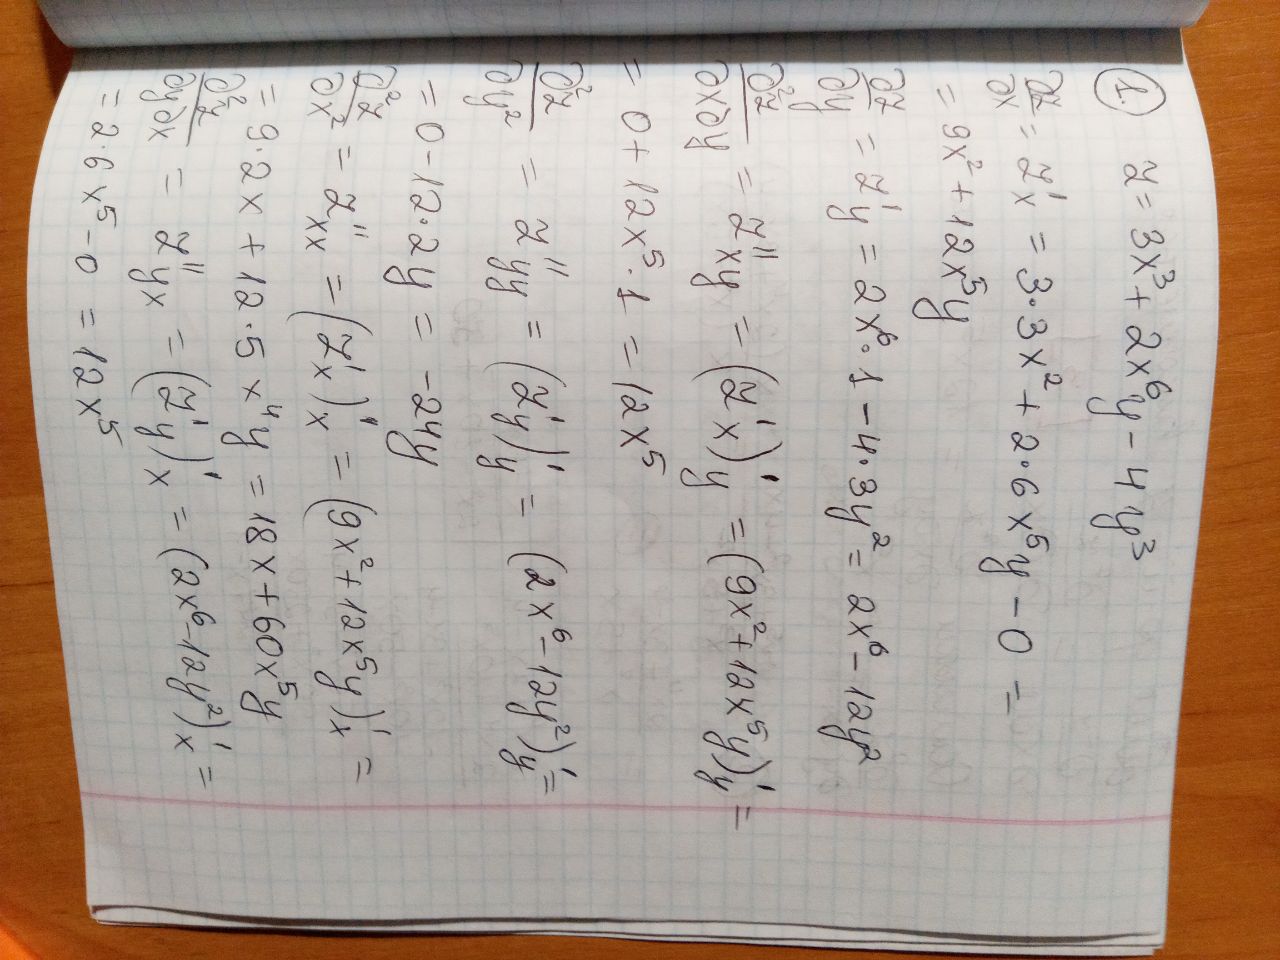 1. z = 3x³ + 2x⁶y − 4y³
∂z/∂x = z'x = 3·3x² + 2·6x⁵y − 0 =
= 9x² + 12x⁵y
∂z/∂y = z'y = 2x⁶·1 − 4·3y² = 2x⁶ − 12y²
∂²z/∂x∂y = z''xy = (z'x)'y = (9x² + 12x⁵y)'y =
= 0 + 12x⁵·1 = 12x⁵
∂²z/∂y² = z''yy = (z'y)'y = (2x⁶ − 12y²)'y =
= 0 − 12·2y = −24y
∂²z/∂x² = z''xx = (z'x)'x = (9x² + 12x⁵y)'x =
= 9·2x + 12·5x⁴y = 18x + 60x⁵y
∂²z/∂y∂x = z''yx = (z'y)'x = (2x⁶ − 12y²)'x =
= 2·6x⁵ − 0 = 12x⁵